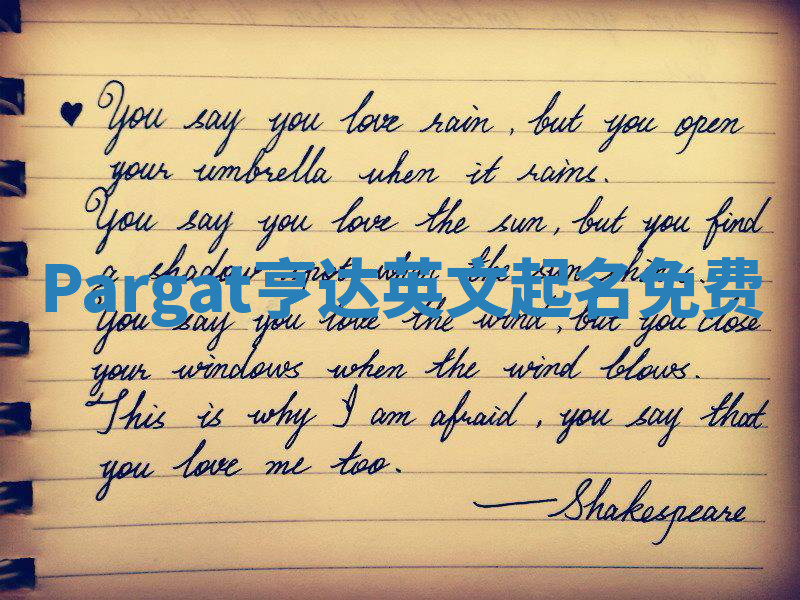 ♥ You say you love rain, but you open
your umbrella when it rains.
You say you love the sun, but you find
a shadow spot when the sun shines.
Pargat亨达英文起名免费
You say you love the wind, but you close
your windows when the wind blows.
This is why I am afraid, you say that
you love me too.
—Shakespeare